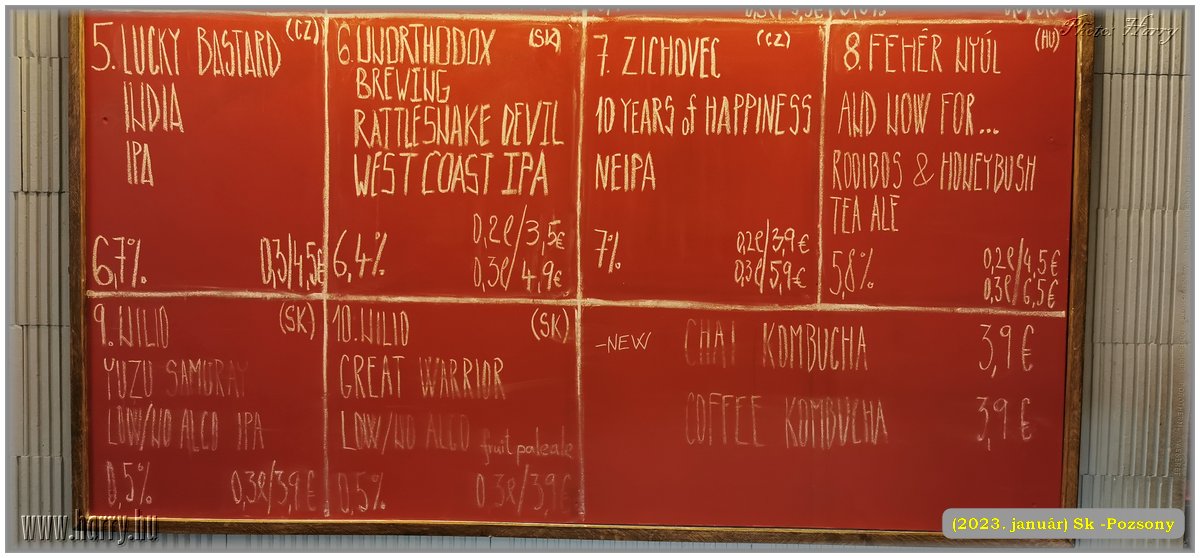 5. LUCKY BASTARD (CZ)
INDIA
IPA
6,7%
0,3/4,5€
6. UNORTHODOX (SK)
BREWING
RATTLESNAKE DEVIL
WEST COAST IPA
6,4%
0,2l/3,5€
0,3l/4,9€
7. ZICHOVEC (CZ)
10 YEARS of HAPPINESS
NEIPA
7%
0,2l/3,9€
0,3l/5,9€
8. FEHÉR NYÚL (HU)
AND NOW FOR...
ROOIBOS & HONEYBUSH
TEA ALE
5,8%
0,2l/4,5€
0,3l/6,5€
9. WILIO (SK)
YUZU SAMURAY
LOW/NO ALCO IPA
0,5%
0,3l/3,9€
10. WILIO (SK)
GREAT WARRIOR
LOW/NO ALCO fruit pale ale
0,5%
0,3l/3,9€
-NEW CHAI KOMBUCHA 3,9€
COFFEE KOMBUCHA 3,9€
Photos Harry
www.harry.hu
(2023. január) Sk -Pozsony